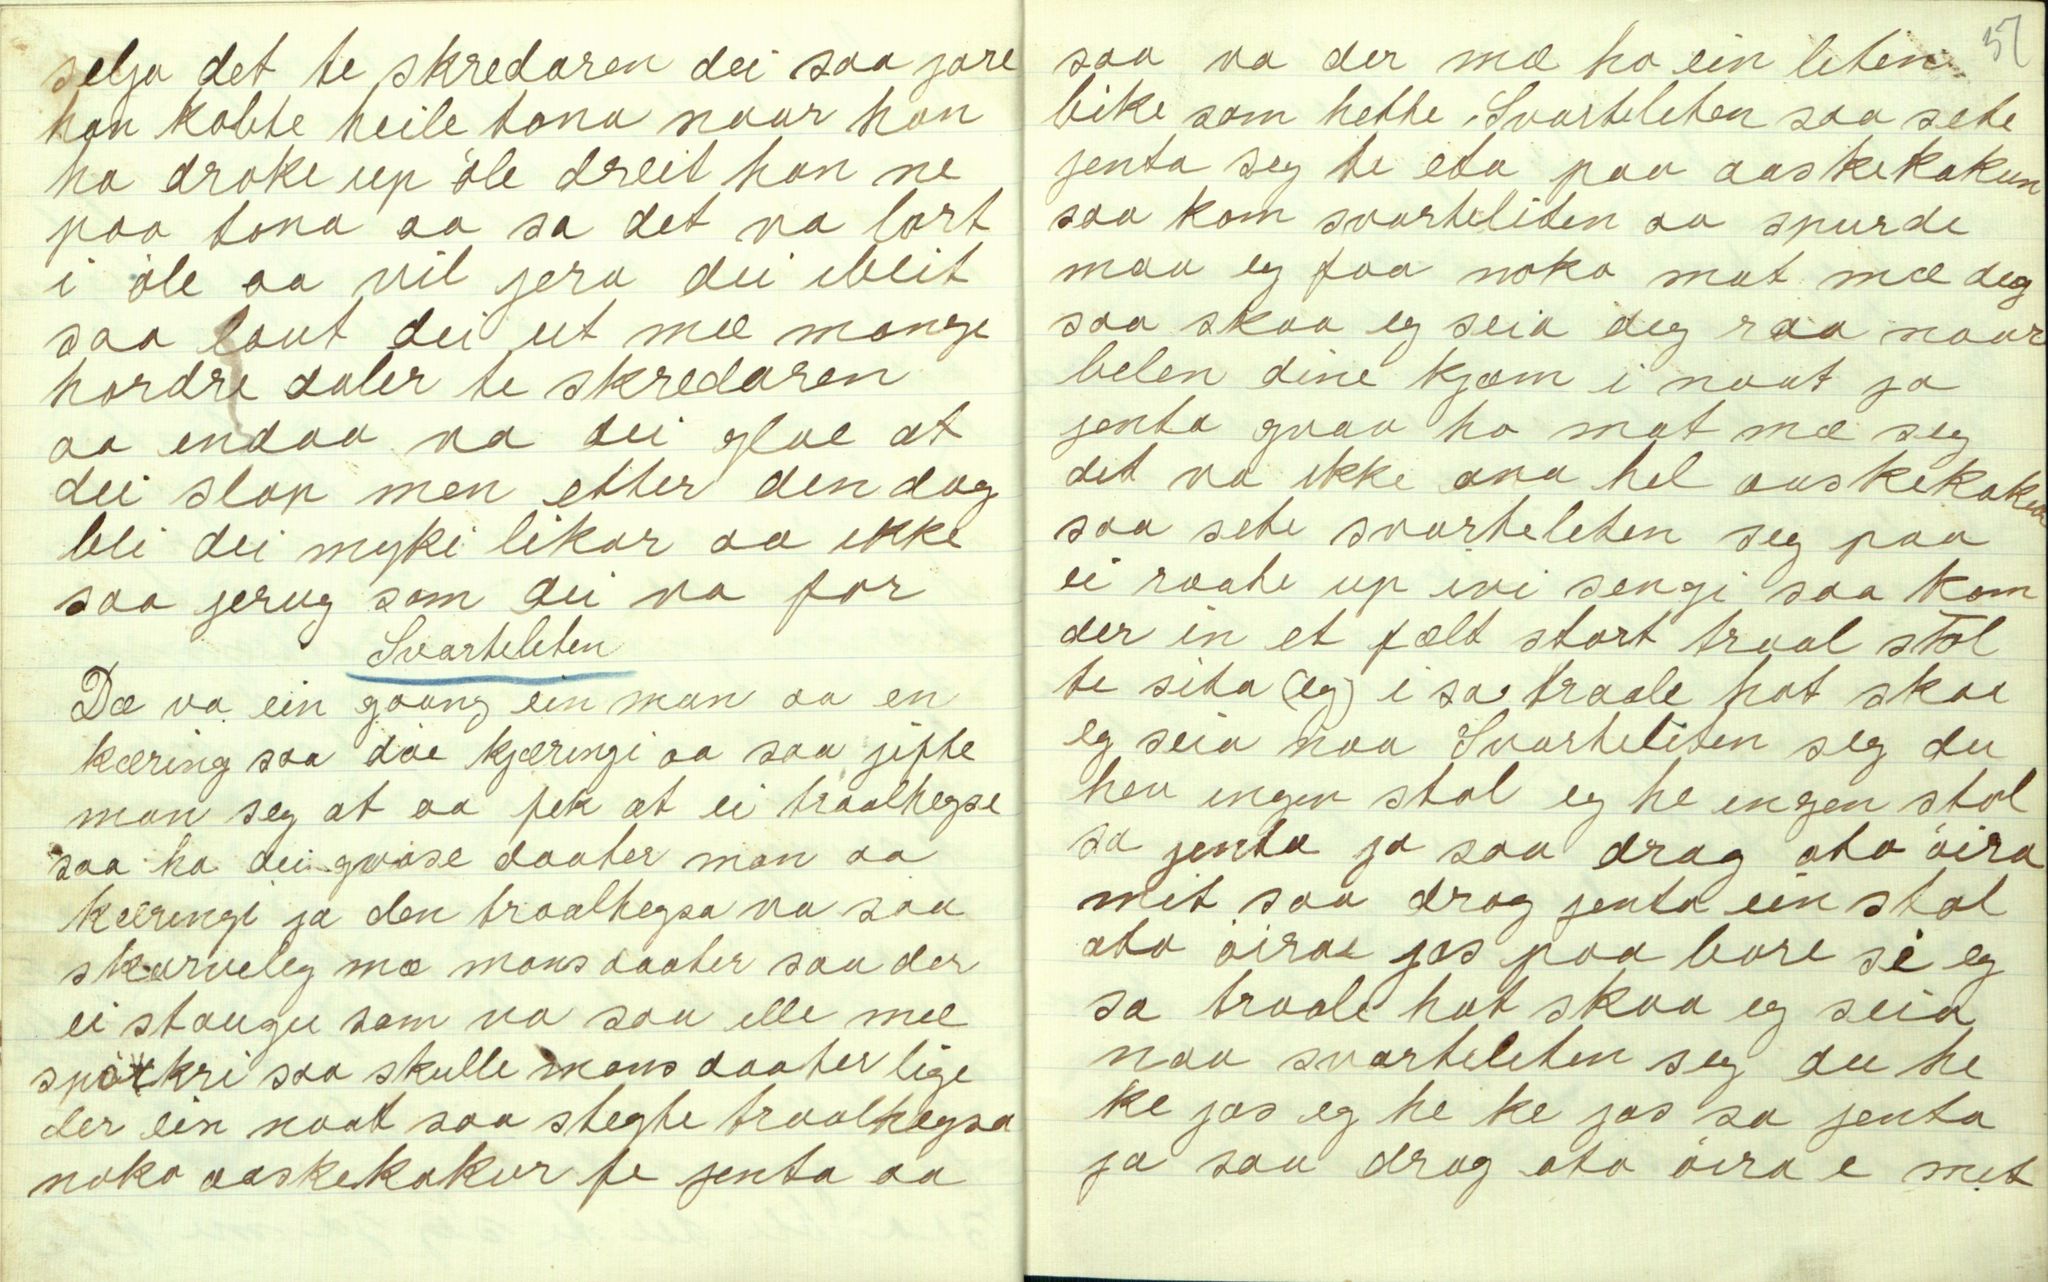 selja det te skredaren dei saa jore
han kobte heile tona naar han
ha droke up öle dreit han ne
paa tona aa sa det va lort
i öle aa vil jera dei ibleit
saa lout dei ut mæ mange
hordre daler te skredaren
aa endaa va dei glae at
dei slap men etter den dag
blei dei myki likar aa ikke
saa jerug som dei va for
Svarteleten
Dæ va ein goang ein man aa en
kæring saa döe kjæringi aa saa jifte
man seg at aa fek at ei traalhegse
saa ha dei qvase daater man aa
kæringi ja den traalhegsa va saa
skarveleg mæ mans daater saa der
ei staugu som va saa ille mæ
spökri saa skulle mans daater lige
der ein naat saa stegte traalhegsa
noko aaskekakur te jenta aa
37
saa va der mæ ho ein leten
bike som hette Svarteleten saa sete
jenta seg te eta paa aaskekakun
saa kom svarteliten aa spurde
maa eg faa noko mat mæ deg
saa skaa eg seia deg raa naar
belen dine kjæm i naat ja
jenta gvaa ho mat mæ seg
det va ikke ana hel aaskekakur
saa sete svarteleten seg paa
ei raate up ivi sengi saa kom
der in et fælt stort traal stol
te sita (eg) i sa traale hot skaa
eg seia naa Svarteliten seg du
hev ingen stol eg he engen stol
sa jenta ja saa drag ata öira
mit saa drog jenta ein stol
ata öirae jas paa bore si eg
sa traale hot skaa eg seia
naa svarteleten seg du he
ke jas eg he ke jas sa jenta
ja saa drag ata öira e mit